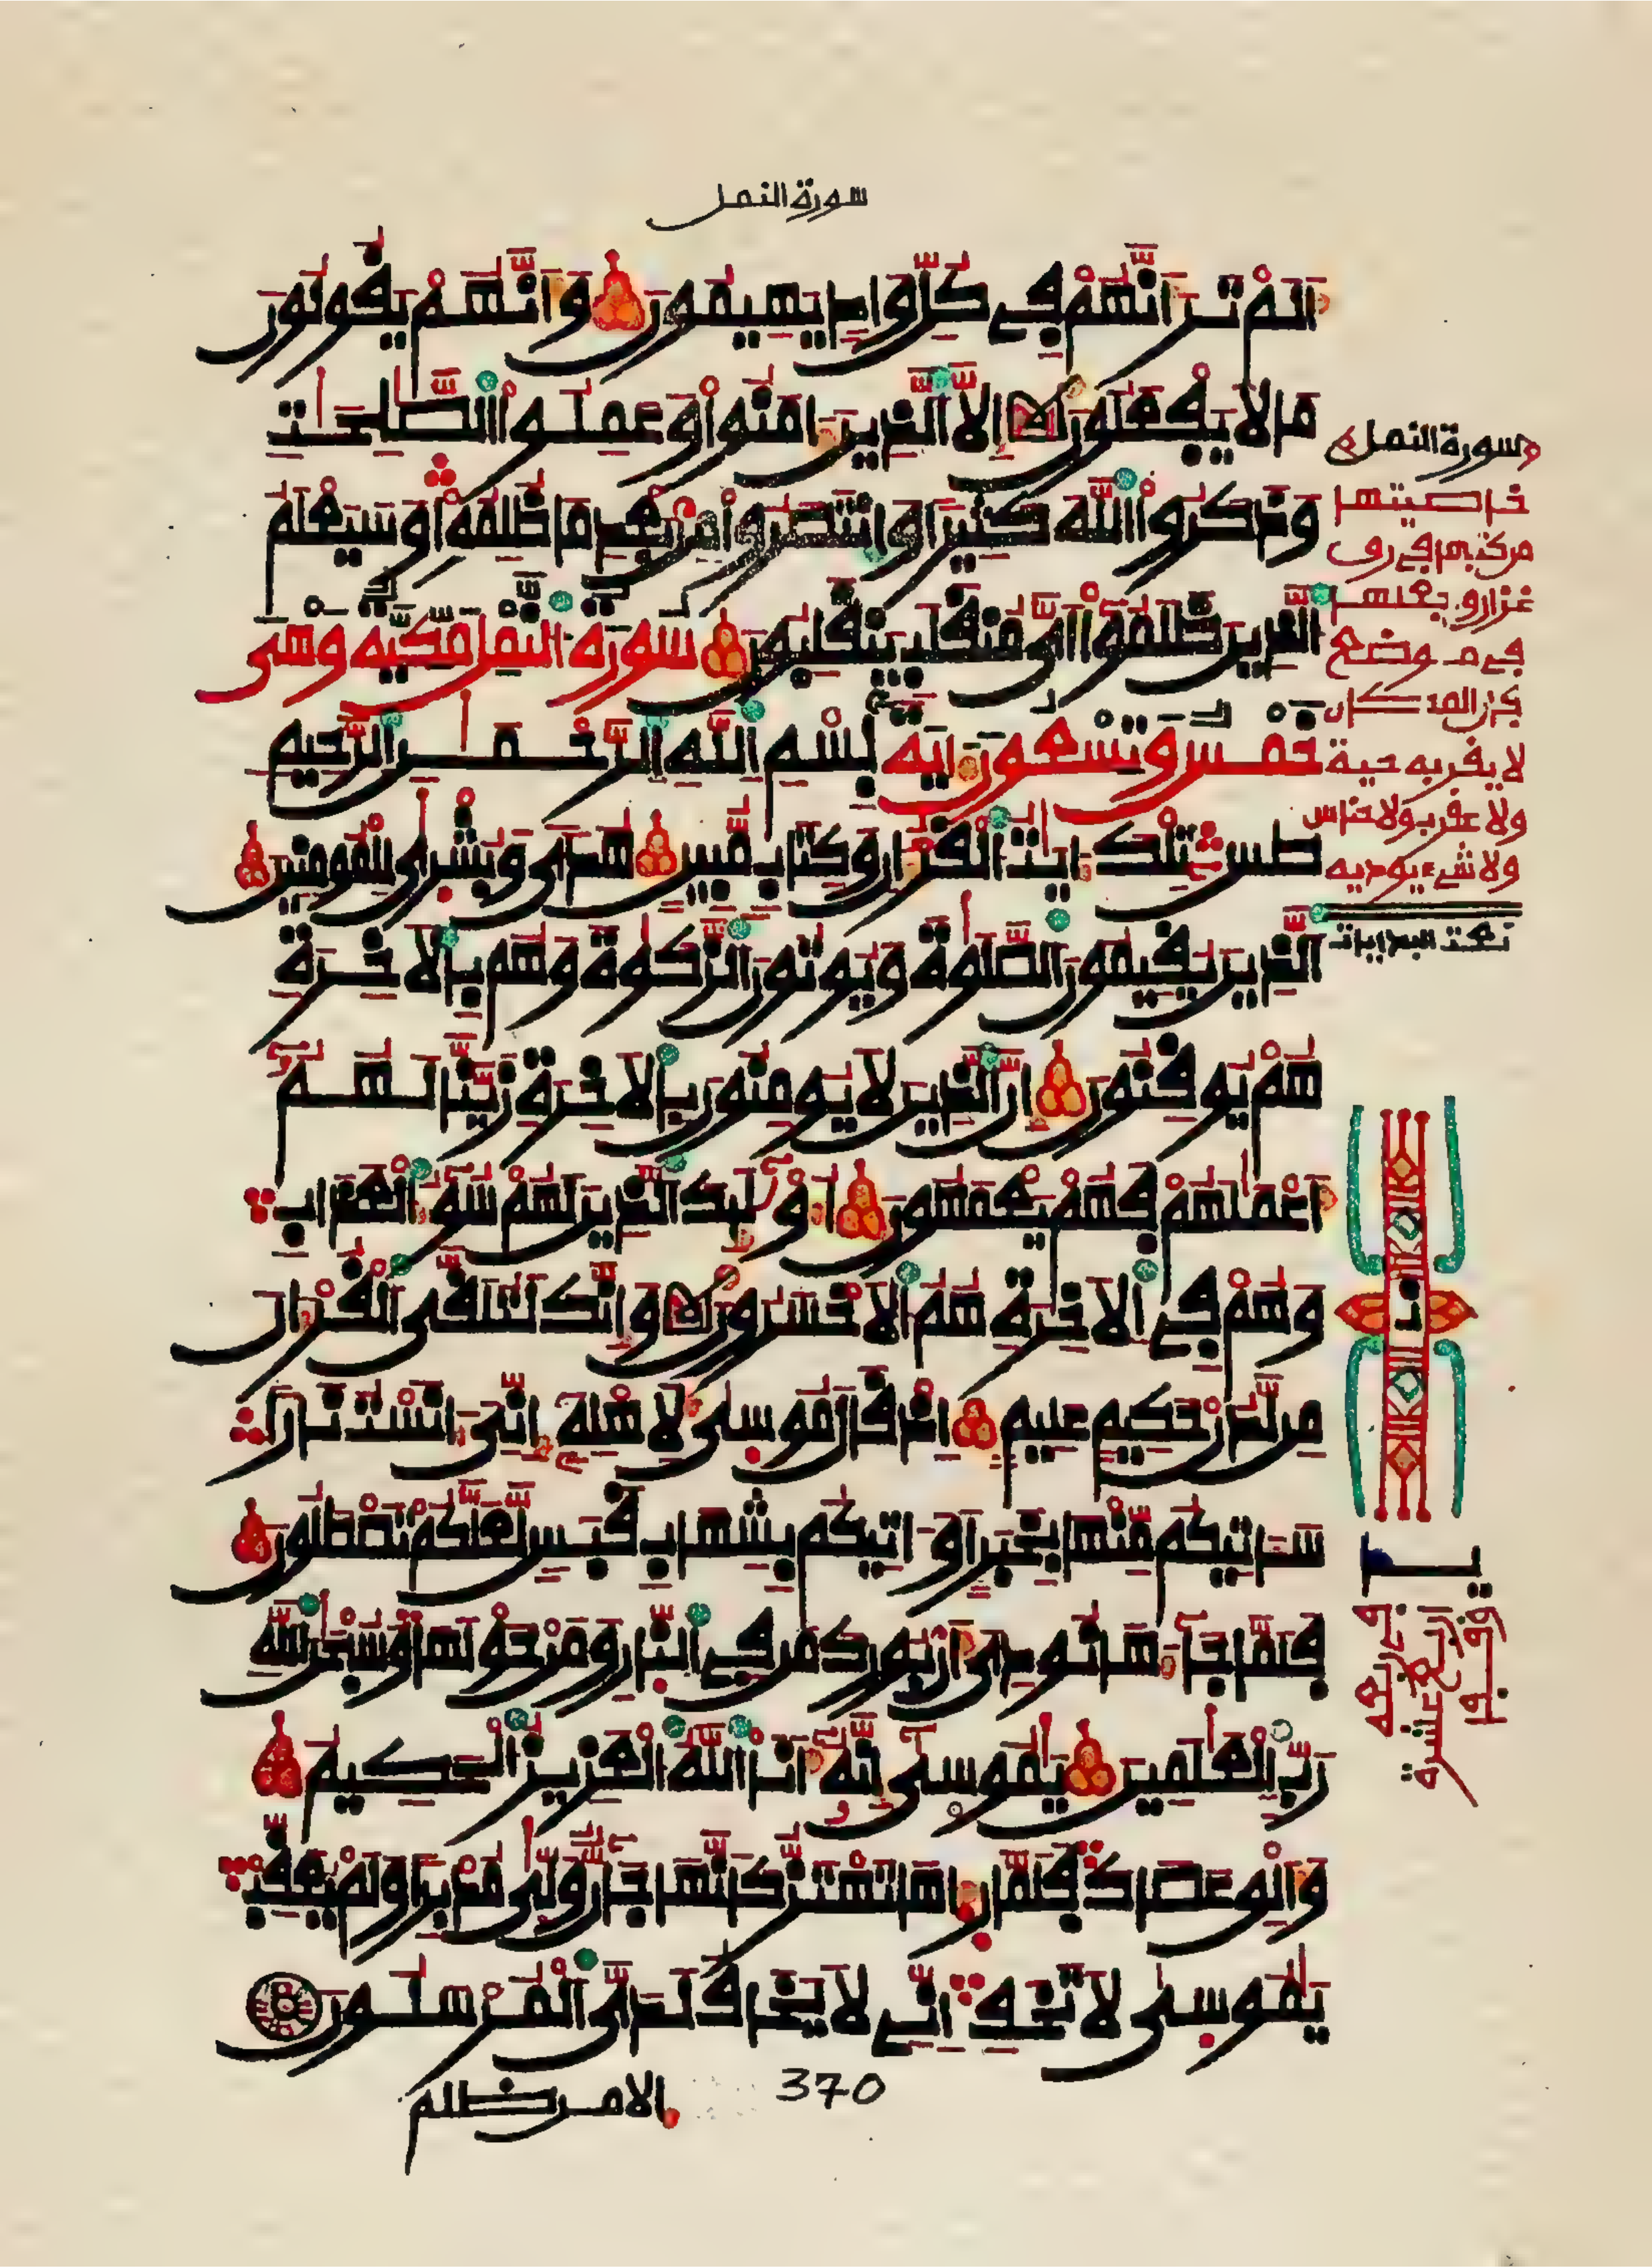 سورة النمل
اَلَمْ تَرَ أَنَّهُمْ فِي كُلِّ وَادٍ يَهِيمُونَ وَأَنَّهُمْ يَقُولُونَ
مَا لَا يَفْعَلُونَ إِلَّا الَّذِينَ ءَامَنُوا وَعَمِلُوا الصَّٰلِحَٰتِ
وَذَكَرُوا اللَّهَ كَثِيرًا وَانتَصَرُوا مِنْ بَعْدِ مَا ظُلِمُوا وَسَيَعْلَمُ
الَّذِينَ ظَلَمُوا أَيَّ مُنقَلَبٍ يَنقَلِبُونَ سُورَةُ النَّمْلِ مَكِّيَّةٌ وَهْيَ
خَمْسٌ وَتِسْعُونَ ءَايَةً بِسْمِ اللَّهِ الرَّحْمَٰنِ الرَّحِيمِ
طسٓ تِلْكَ ءَايَٰتُ الْقُرْءَانِ وَكِتَابٍ مُّبِينٍ هُدًى وَبُشْرَىٰ لِلْمُومِنِينَ
الَّذِينَ يُقِيمُونَ الصَّلَوٰةَ وَيُوتُونَ الزَّكَوٰةَ وَهُم بِالَاخِرَةِ
هُمْ يُوقِنُونَ إِنَّ الَّذِينَ لَا يُومِنُونَ بِالَاخِرَةِ زَيَّنَّا لَهُمُ
أَعْمَٰلَهُمْ فَهُمْ يَعْمَهُونَ أُوْلَٰئِكَ الَّذِينَ لَهُمْ سُوٓءُ الْعَذَابِ
وَهُمْ فِي الَاخِرَةِ هُمُ الَاخْسَرُونَ وَإِنَّكَ لَتُلَقَّى الْقُرْءَانَ
مِن لَّدُنْ حَكِيمٍ عَلِيمٍ إِذْ قَالَ مُوسَىٰ لِأَهْلِهِ إِنِّيَ ءَانَسْتُ نَارًا
سَـَٔاتِيكُم مِّنْهَا بِخَبَرٍ أَوَ ـاتِيكُم بِشِهَابِ قَبَسٍ لَّعَلَّكُمْ تَصْطَلُونَ
فَلَمَّا جَآءَهَا نُودِيَ أَنۢ بُورِكَ مَن فِي النَّارِ وَمَنْ حَوْلَهَا وَسُبْحَٰنَ اللَّهِ
رَبِّ الْعَٰلَمِينَ يَٰمُوسَىٰ إِنَّهُ أَنَا اللَّهُ الْعَزِيزُ الْحَكِيمُ
وَأَلْقِ عَصَاكَ فَلَمَّا رَءَاهَا تَهْتَزُّ كَأَنَّهَا جَآنٌّ وَلَّىٰ مُدْبِرًا وَلَمْ يُعَقِّبْ
يَٰمُوسَىٰ لَا تَخَفِ إِنِّي لَا يَخَافُ لَدَيَّ الْمُرْسَلُونَ
الا من ظلم
370
سورة النمل
خاصيتها
من كتبها في رق
غزال وجعلها
في موضع
من المكان
لا يقربه حية
ولا عقرب ولا خناس
ولا شيء يوذيه